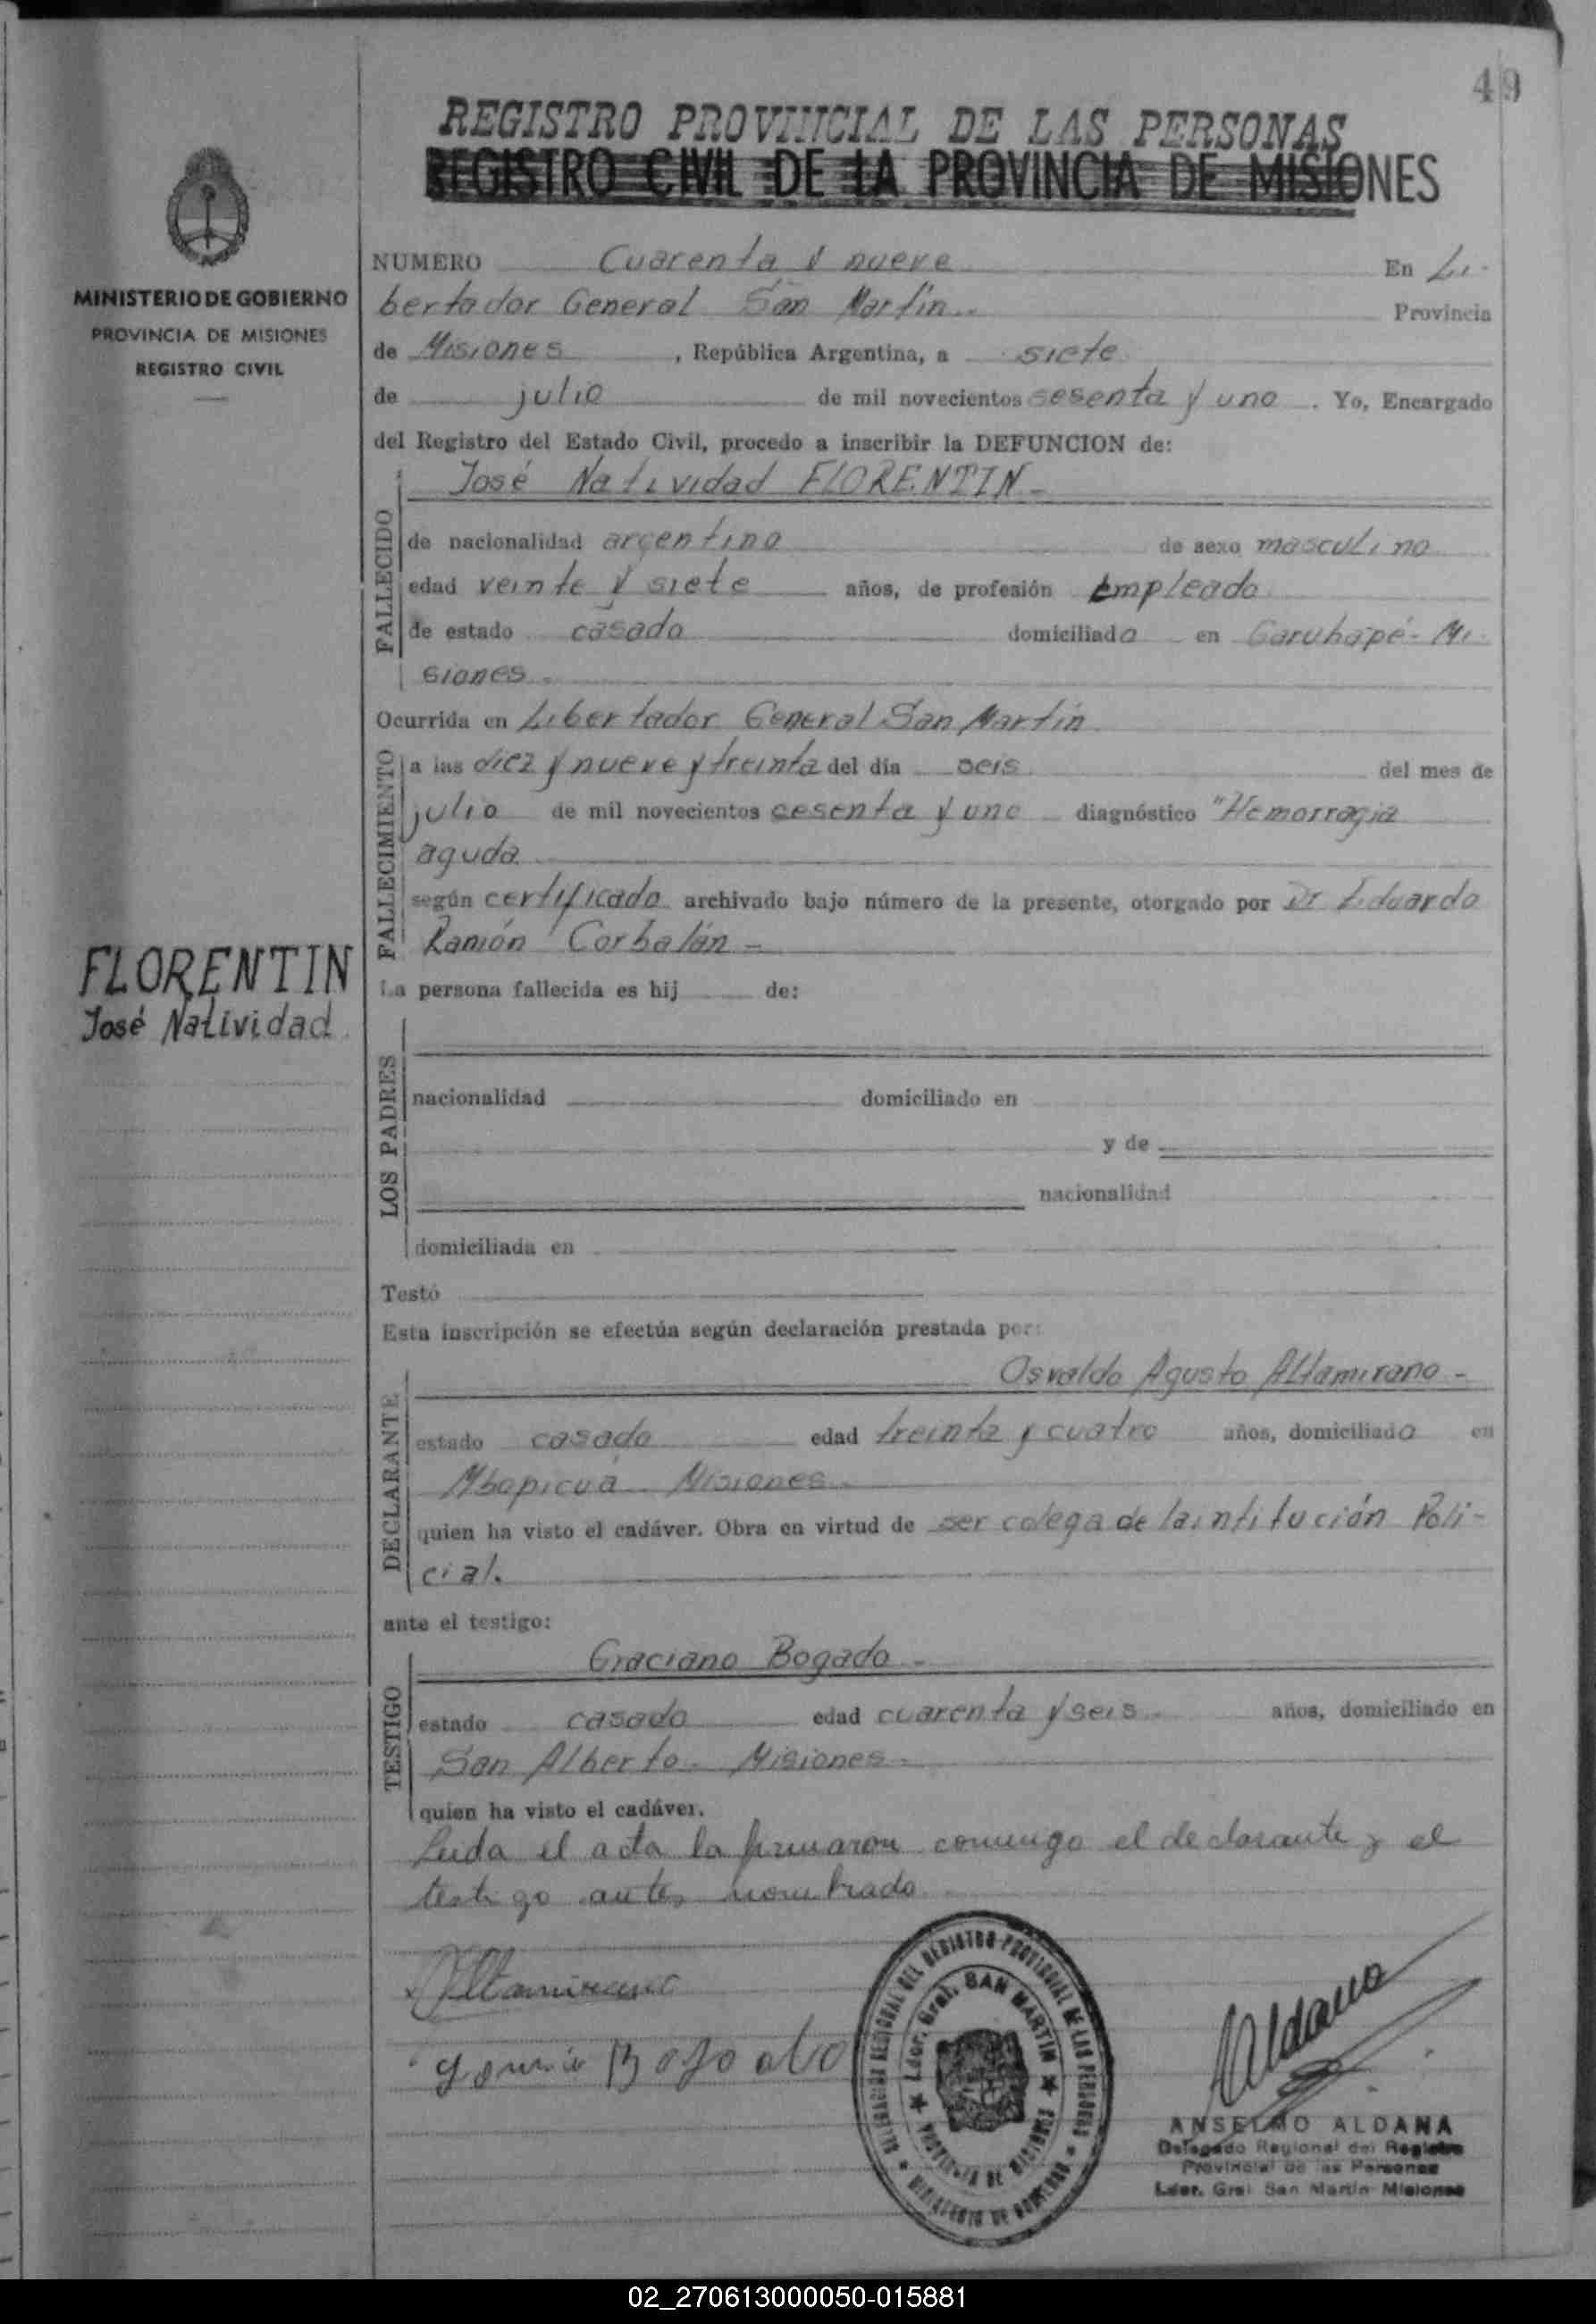 49
REGISTRO PROVINCIAL DE LAS PERSONAS
REGISTRO CIVIL DE LA PROVINCIA DE MISIONES
MINISTERIO DE GOBIERNO
PROVINCIA DE MISIONES
REGISTRO CIVIL
FLORENTIN
José Natividad
NUMERO Cuarenta y nueve En Li-
bertador General San Martin.. Provincia
de Misiones, República Argentina, a siete
de julio de mil novecientos sesenta y uno. Yo, Encargado
del Registro del Estado Civil, procedo a inscribir la DEFUNCION de:
FALLECIDO
José Natividad FLORENTIN.-
de nacionalidad argentino de sexo masculino
edad veinte y siete años, de profesión Empleado
de estado casado domiciliado en Garuhapé- Mi-
siones.
Ocurrida en Libertador General San Martin
FALLECIMIENTO
a las diez y nueve y treinta del día seis del mes de
julio de mil novecientos sesenta y uno diagnóstico "Hemorragia
aguda
según certificado archivado bajo número de la presente, otorgado por Dr Eduardo
Ramón Corbalán-
La persona fallecida es hij de:
LOS PADRES
nacionalidad domiciliado en
y de
nacionalidad
domiciliada en
Testó
Esta inscripción se efectúa según declaración prestada por:
DECLARANTE
Osvaldo Agusto Altamirano-
estado casado edad treinta y cuatro años, domiciliado en
Mbopicuá Misiones.
quien ha visto el cadáver. Obra en virtud de ser colega de la intitución Poli-
cial.
ante el testigo:
TESTIGO
Graciano Bogado-
estado casado edad cuarenta y seis años, domiciliado en
San Alberto- Misiones.
quien ha visto el cadáver.
Leida el acta la firmaron conmigo el declarante y el
testigo antes nombrado
Altamirano
Bogado
DELEGACION REGIONAL DEL REGISTRO PROVINCIAL DE LAS PERSONAS
MINISTERIO DE GOBIERNO
Ldor. Gral. SAN MARTIN
PROVINCIA DE MISIONES
Aldana
ANSELMO ALDANA
Delegado Regional del Registro
Provincial de las Personas
Ldor. Gral San Martin Misiones
02_270613000050-015881